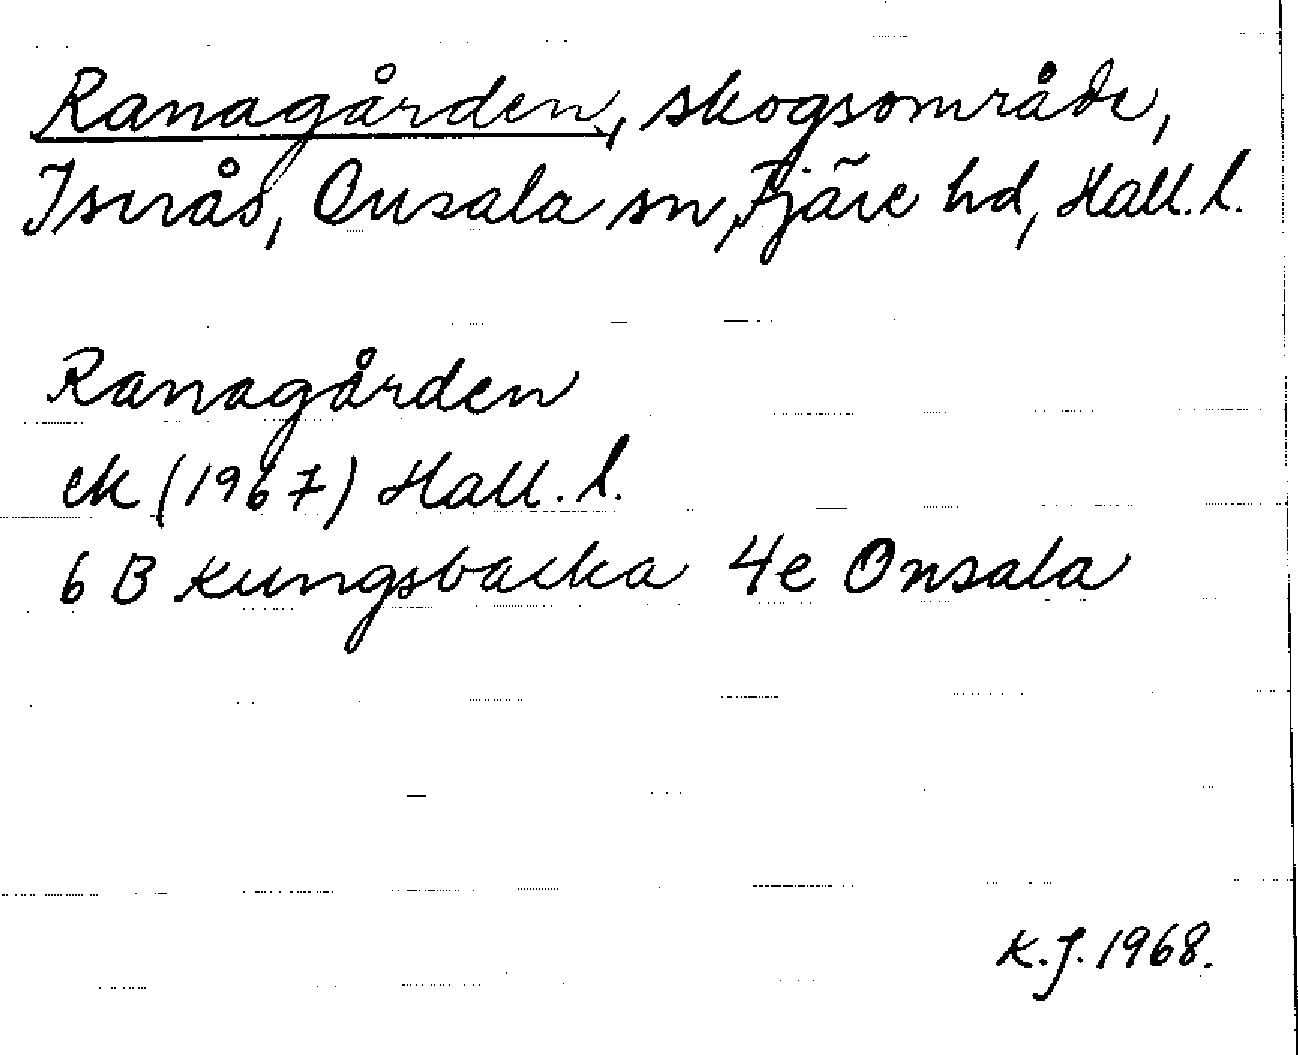 Ranagården, skogsområde,
Isnrås, Onsala sn, Fjäre hd, Hall. l.
Ranagården
ek (1967) Hall. l.
6 B Kungsbacka 4e Onsala
K.J. 1968.